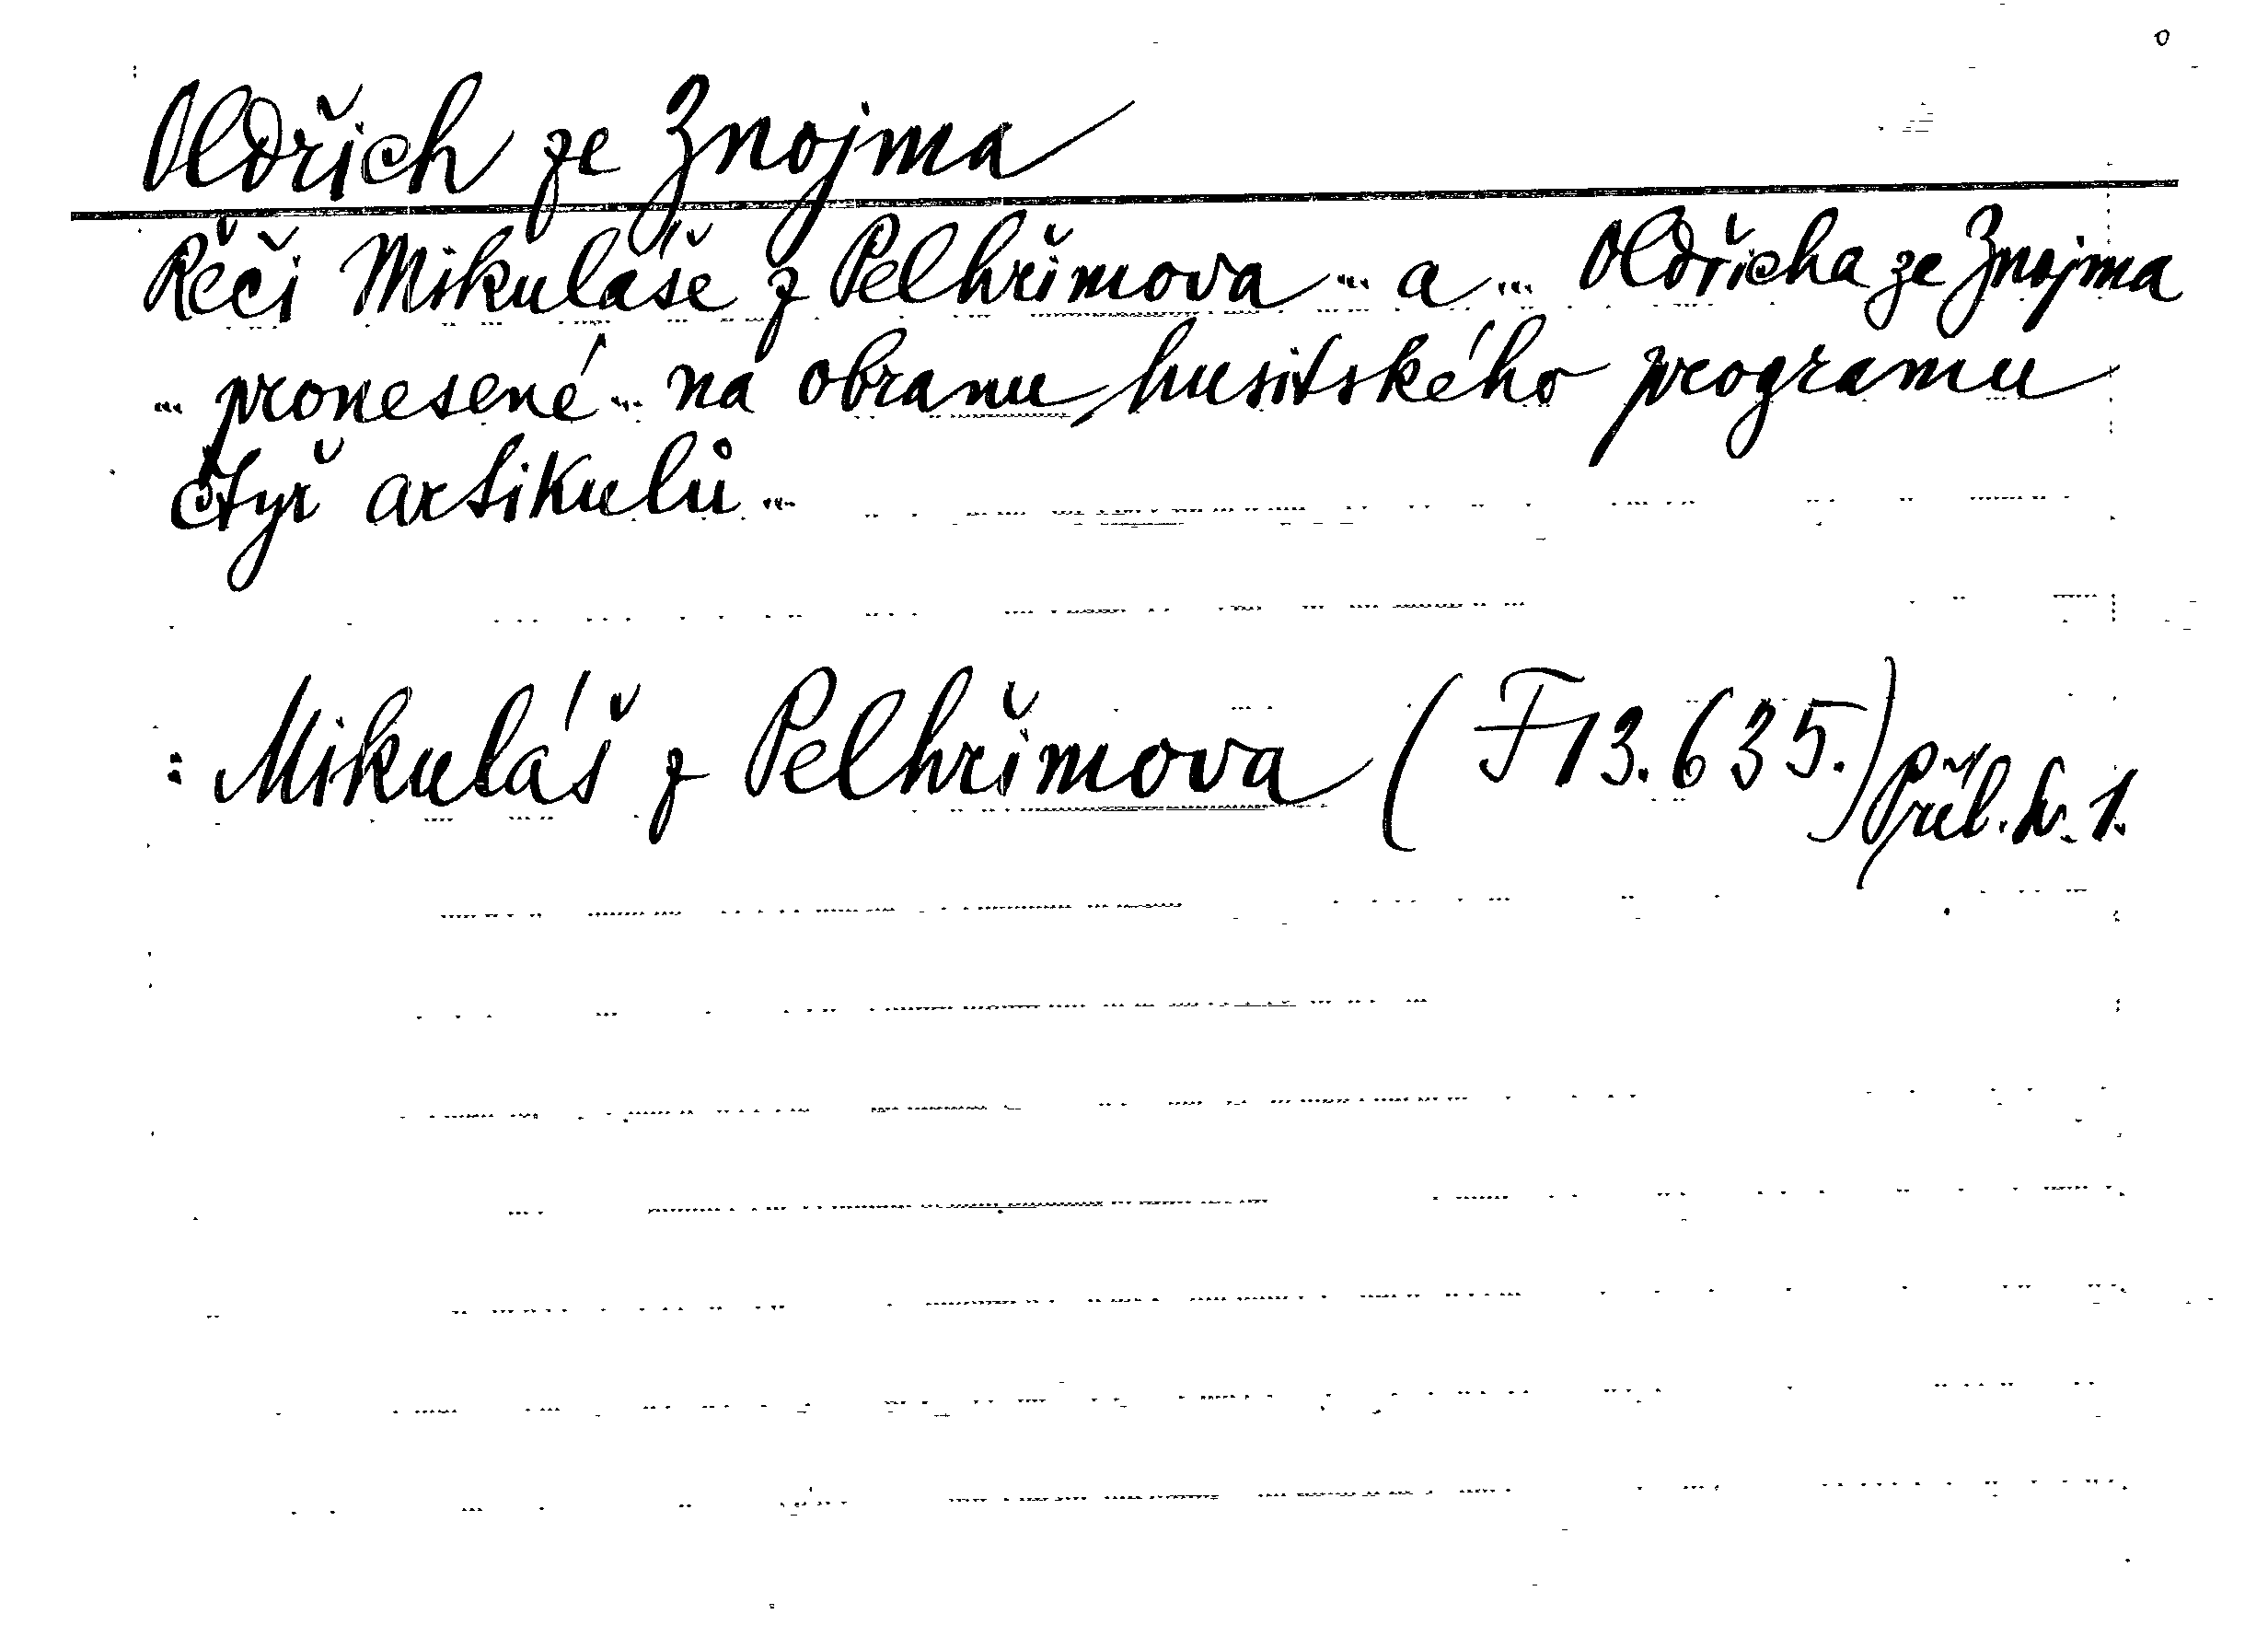 Oldřich ze Znojma
Řeči Mikuláše z Pelhřimova ... a ... Oldřicha ze Znojma
... pronesené ... na obranu husitského programu
čtyř artikulů ...
: Mikuláš z Pelhřimova (F 13.635.) Příl. 1.